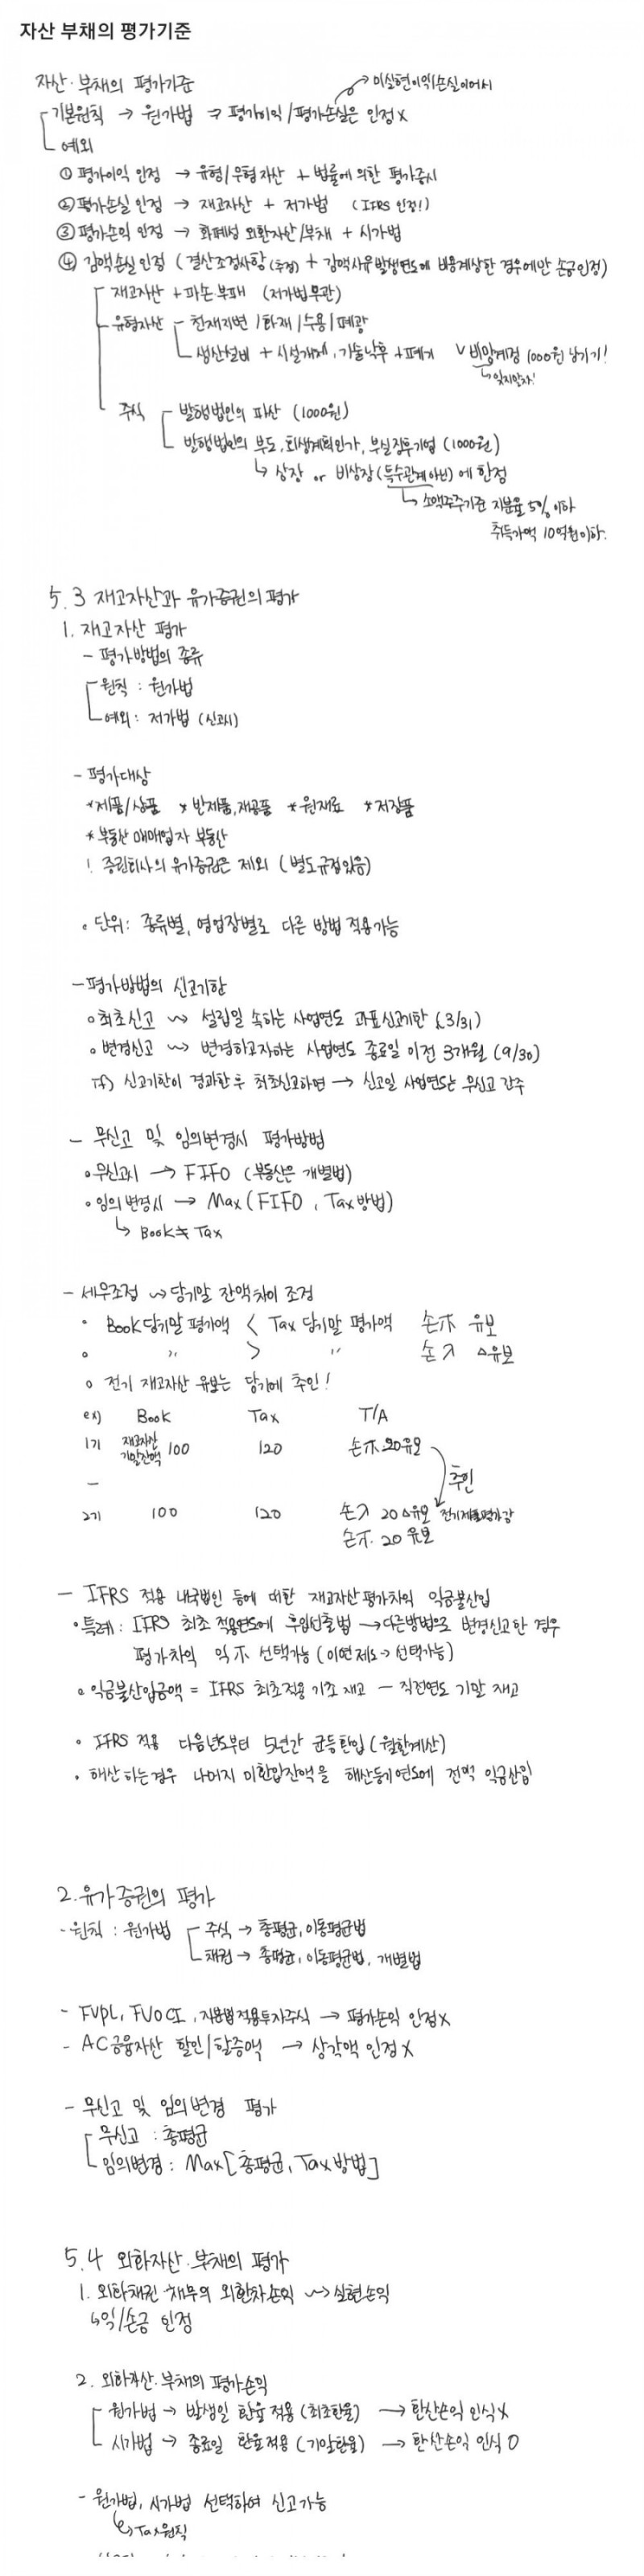 자산 부채의 평가기준
자산·부채의 평가기준
→ 미실현이익/손실이어서
기본원칙 → 원가법 ⇒ 평가이익/평가손실은 인정 X
예외
① 평가이익 인정 → 유형/무형자산 + 법률에 의한 평가증시
② 평가손실 인정 → 재고자산 + 저가법 (IFRS 인정!)
③ 평가손익 인정 → 화폐성 외환자산/부채 + 시가법
④ 감액손실 인정 (결산조정사항(추정) + 감액사유 발생연도에 비용계상한 경우에만 손금인정)
재고자산 + 파손 부패 (저가법 무관)
유형자산 천재지변/화재/수용/폐광
생산설비 + 시설개체, 기술낙후 + 폐기 ∨ 비망계정 1000원 남기기!
↳ 잊지말자!
주식 발행법인의 파산 (1000원)
발행법인의 부도, 회생계획인가, 부실징후기업 (1000원)
↳ 상장 or 비상장(특수관계 아닌)에 한정
↳ 소액주주기준 지분율 5% 이하
취득가액 10억원 이하.
5.3 재고자산과 유가증권의 평가
1. 재고자산 평가
- 평가방법의 종류
원칙 : 원가법
예외 : 저가법 (신고시)
- 평가대상
*제품/상품 *반제품, 재공품 *원재료 *저장품
*부동산 매매업자 부동산
! 증권회사의 유가증권은 제외 (별도규정있음)
• 단위: 종류별, 영업장별로 다른 방법 적용가능
- 평가방법의 신고기한
• 최초신고 ⇝ 설립일 속하는 사업연도 과표신고기한 (3/31)
• 변경신고 ⇝ 변경하고자하는 사업연도 종료일 이전 3개월 (9/30)
if) 신고기한이 경과한 후 최초신고하면 → 신고일 사업연도는 무신고 간주
- 무신고 및 임의변경시 평가방법
• 무신고시 → FIFO (부동산은 개별법)
• 임의변경시 → Max (FIFO, Tax방법)
↳ Book ≠ Tax
- 세무조정 ⇝ 당기말 잔액차이 조정
• Book당기말 평가액 < Tax 당기말 평가액 손不 유보
• 〃 > 〃 손入 △유보
• 전기 재고자산 유보는 당기에 추인!
ex) Book Tax T/A
1기 재고자산 기말잔액 100 120 손不 20 유보
추인
2기 100 120 손入 20 △유보 전기재고평가감
손不. 20 유보
- IFRS 적용 내국법인 등에 대한 재고자산평가차익 익금불산입
• 특례 : IFRS 최초 적용연도에 후입선출법 → 다른방법으로 변경신고한 경우
평가차익 익不 선택가능 (이연제도 → 선택가능)
• 익금불산입금액 = IFRS 최초적용 기초 재고 - 직전연도 기말 재고
• IFRS 적용 다음년도부터 5년간 균등환입 (월할계산)
• 해산하는경우 나머지 미환입잔액을 해산등기연도에 전액 익금산입
2. 유가증권의 평가
- 원칙 : 원가법 주식 → 총평균, 이동평균법
채권 → 총평균, 이동평균법, 개별법
- FVPL, FVOCI, 지분법적용투자주식 → 평가손익 인정 X
- AC금융자산 할인/할증액 → 상각액 인정 X
- 무신고 및 임의변경 평가
무신고 : 총평균
임의변경 : Max [총평균, Tax방법]
5.4 외화자산·부채의 평가
1. 외화채권·채무의 외환차손익 ⇝ 실현손익
↳ 익/손금 인정
2. 외화자산·부채의 평가손익
원가법 → 발생일 환율 적용 (최초환율) → 환산손익 인식 X
시가법 → 종료일 환율적용 (기말환율) → 환산손익 인식 O
- 원가법, 시가법 선택하여 신고가능
↳ Tax원칙